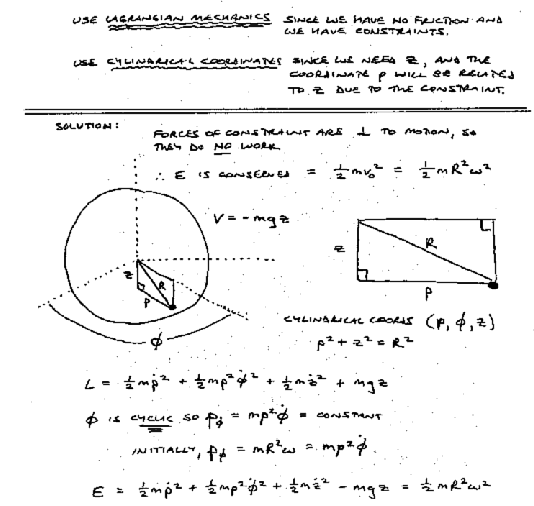 USE LAGRANGIAN MECHANICS SINCE WE HAVE NO FRICTION AND
WE HAVE CONSTRAINTS.
USE CYLINDRICAL COORDINATES SINCE WE NEED Z, AND THE
COORDINATE ρ WILL BE RELATED
TO Z DUE TO THE CONSTRAINT.
SOLUTION:
FORCES OF CONSTRAINT ARE ⊥ TO MOTION, SO
THEY DO NO WORK
∴ E IS CONSERVED = ½mv₀² = ½mR²ω²
V = -mgz
z R ρ
φ
z R ρ
CYLINDRICAL COORDS (ρ, φ, z)
ρ² + z² = R²
L = ½mρ̇² + ½mρ²φ̇² + ½mż² + mgz
φ IS CYCLIC SO p_φ = mρ²φ̇ = CONSTANT
INITIALLY, p_φ = mR²ω = mρ²φ̇
E = ½mρ̇² + ½mρ²φ̇² + ½mż² - mgz = ½mR²ω²